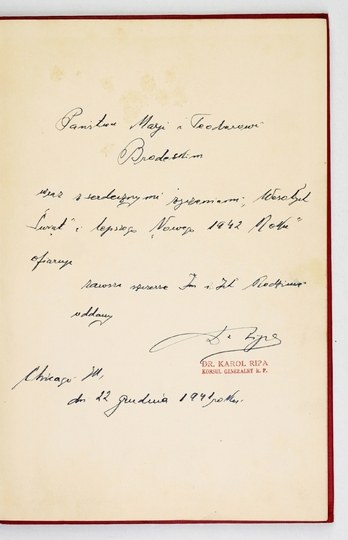 Państwu Marji i Teodorowi
Brodeskim
wraz z serdecznymi życzeniami, "Wesołych
Świąt" i lepszego "Nowego 1942 Roku"
ofiaruje
zawsze szczerze Im i Ich Rodzinie
oddany
Dr Ripa
DR. KAROL RIPA
KONSUL GENERALNY R. P.
Chicago Ill,
dn 22 grudnia 1941 roku.